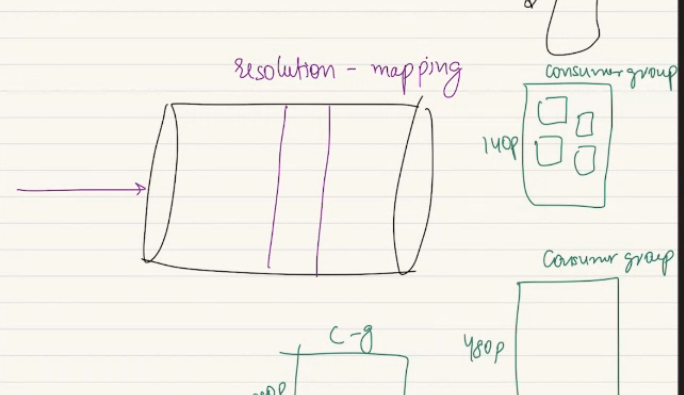 resolution - mapping
consumer group
140p
consumer group
480p
c-g